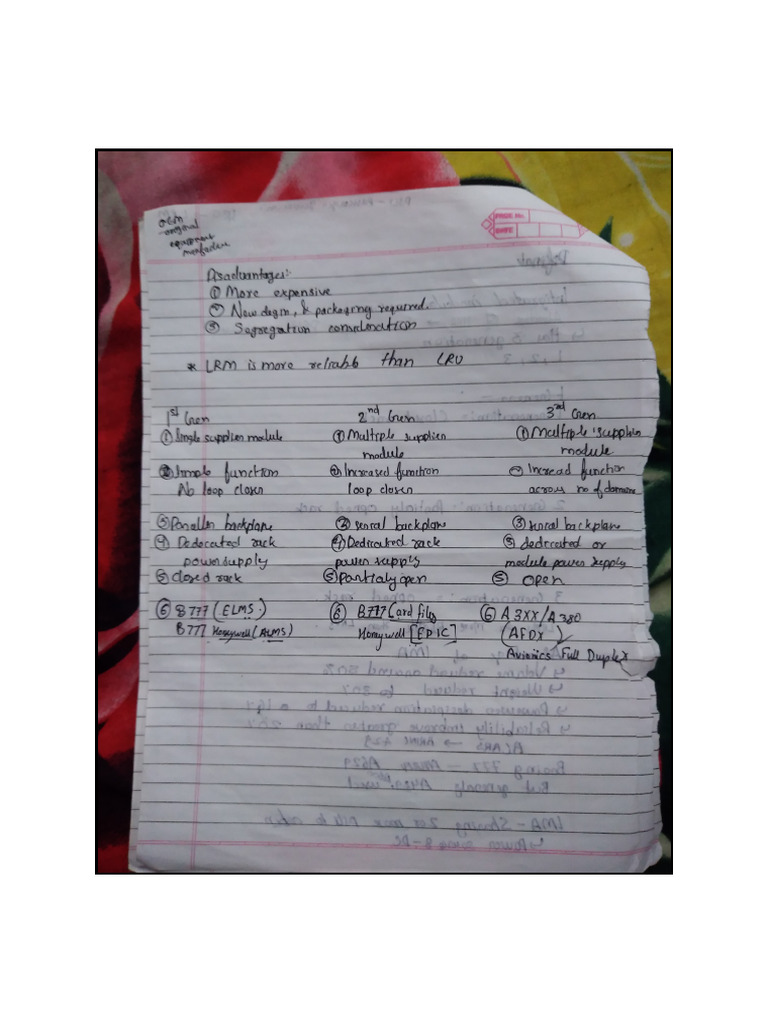 PAGE No.
DATE
OEM
original
equipment
Disadvantages:-
① More expensive
② New design, & packaging required.
③ Segregation consideration
* LRM is more reliable than LRU
1st Gen
① Single supplier module
② Simple function
No loop closen
③ Parallen backplane
④ Dedecated rack
power supply
⑤ Closed rack
⑥ B777 (ELMS)
B777 Honeywell (AIMS)
2nd Gen
① Multiple supplien
module
② Increased function
loop closen
③ serial backplane
④ Dedicated rack
power supply
⑤ Partialy open
⑥ B777 Card files
Honeywell [EPIC]
3rd Gen
① Multiple supplien
module
② Incread function
across no of domains
③ serial backplane
⑤ dedicated or
module power supply
⑤ open
⑥ A3XX/A380
(AFDX)
Avionics Full Duplex